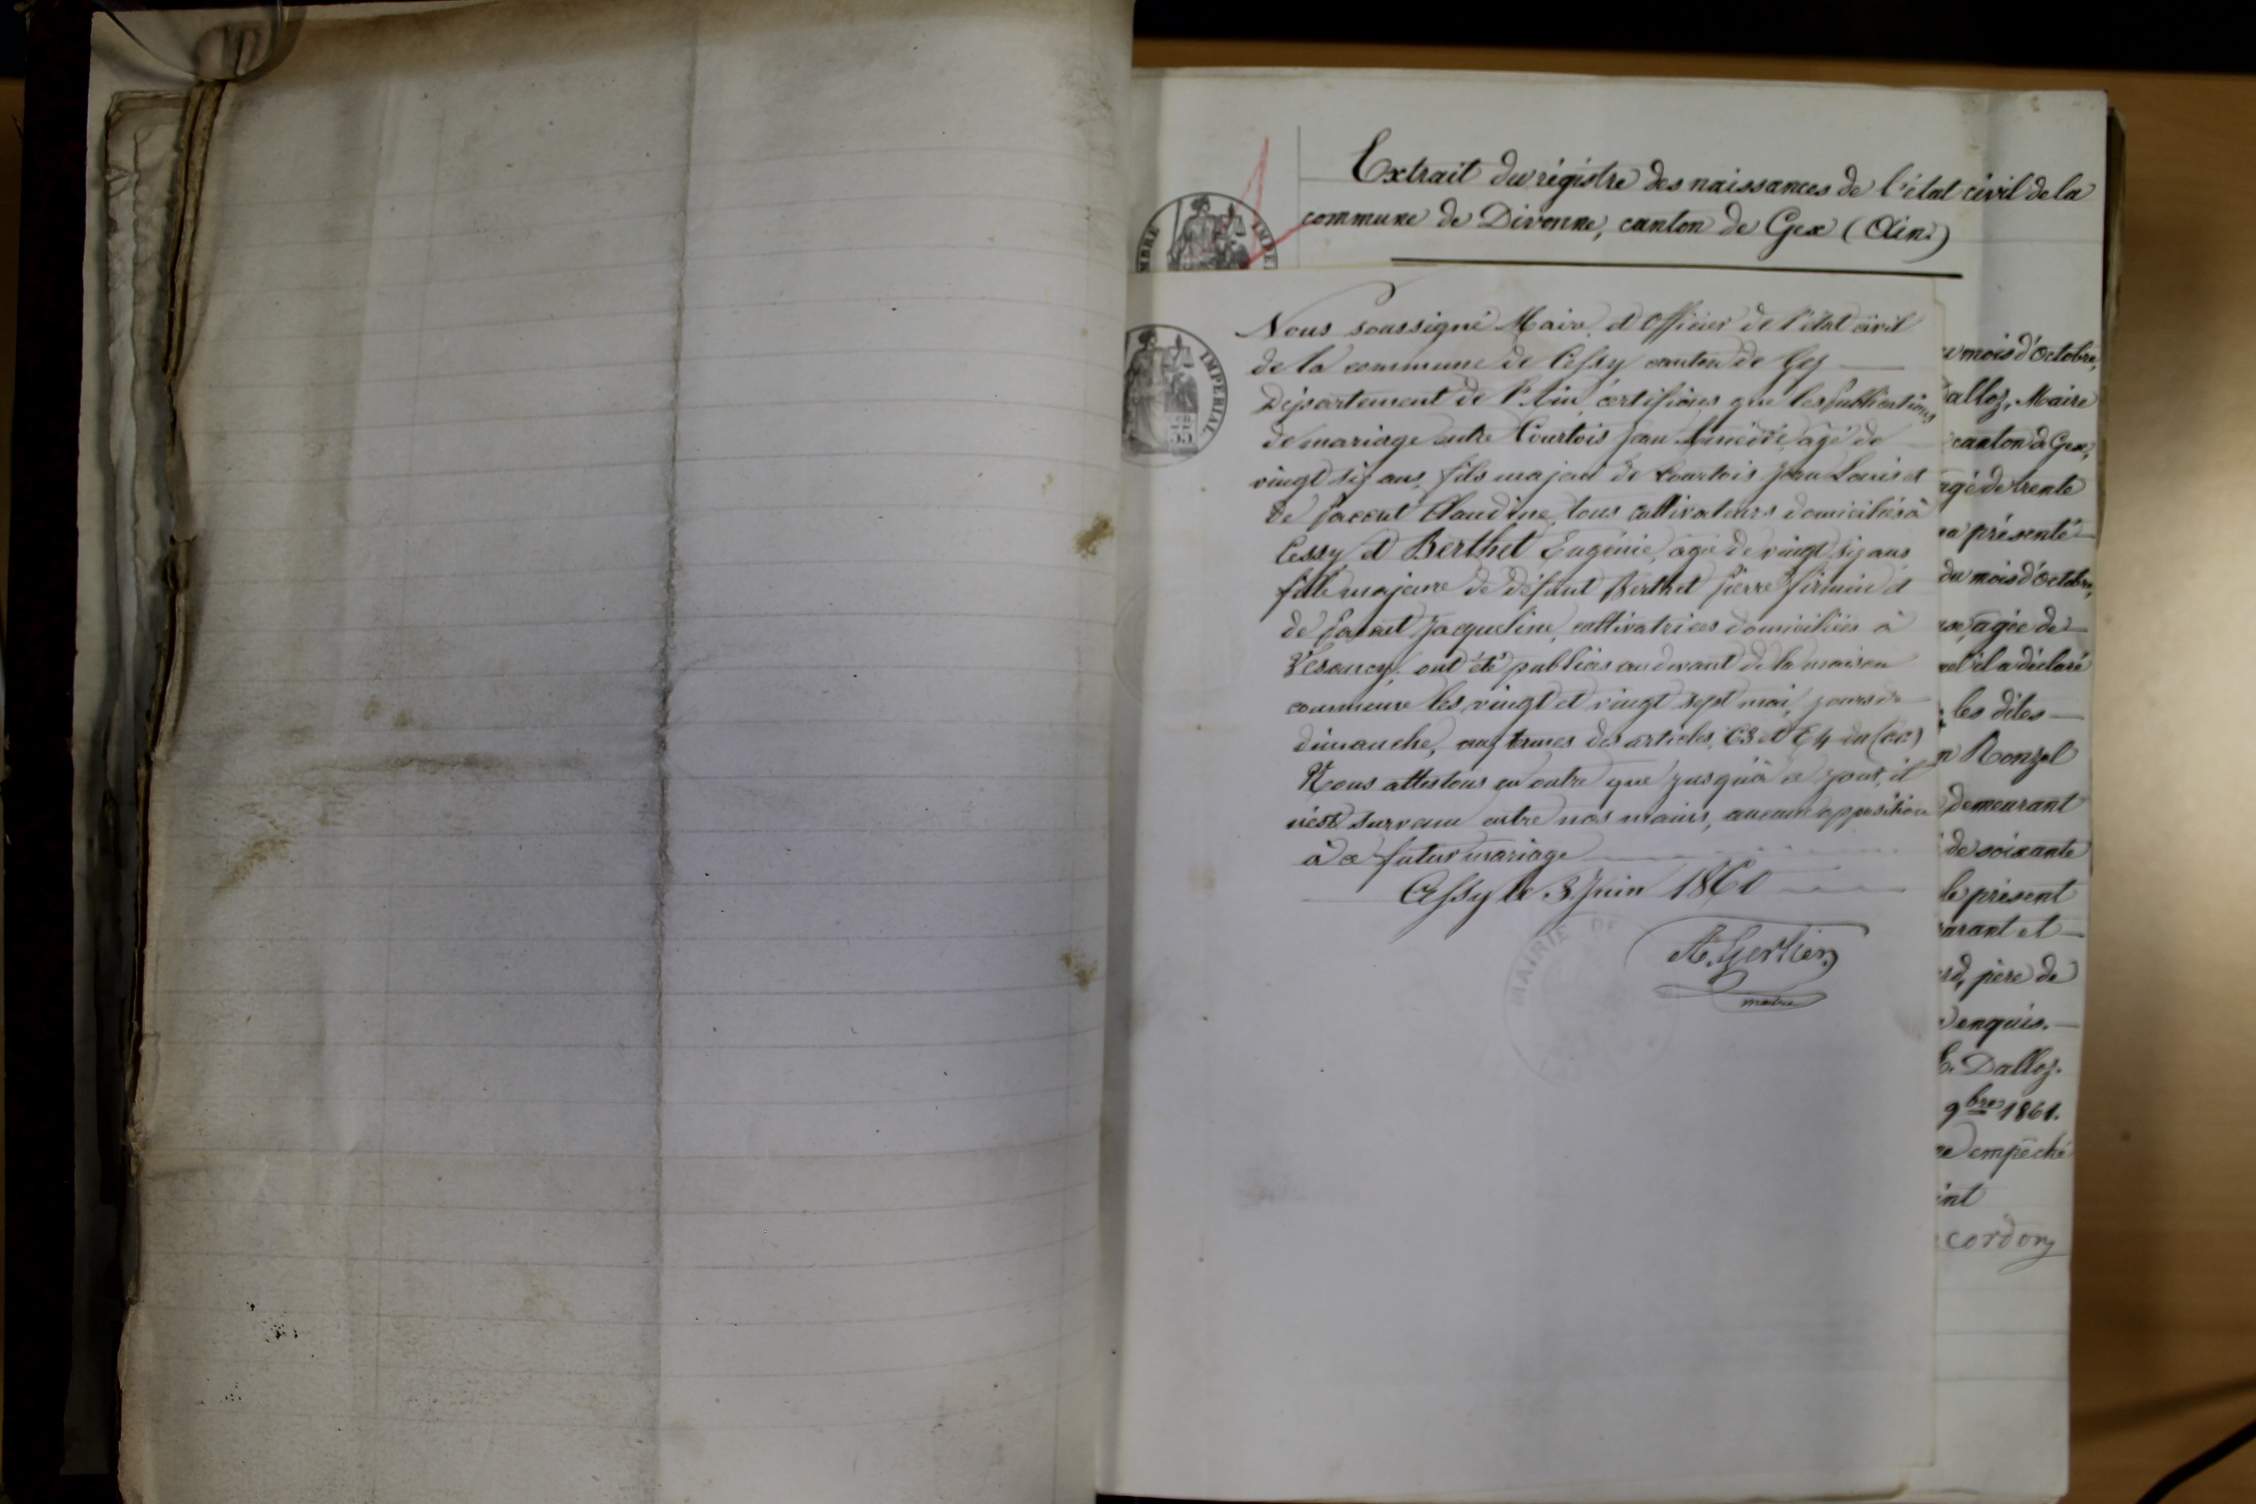 Extrait du régistre des naissances de l'état civil de la
commune de Divonne, canton de Gex (Ain.)
MBRE IMPE
IMPERIAL
Nous soussigné Maire et Officier de l'état civil
de la commune de Cessy canton de Gex
Département de l'Ain certifions que les publications
de mariage entre Courtois Jean âgé de
vingt six ans, fils majeur de Courtois Jean Louis et
de Claudine, tous cultivateurs domiciliés à
Cessy et Berthet Eugénie, agée de vingt six ans
fille majeure de défunt Berthet Pierre Firmin et
de Jacqueline, cultivatrices domiciliées à
Vesancy, ont été publiées au devant de la maison
commune les vingt et vingt sept mai, jours de
dimanche, aux termes des articles 63 et 64 du (cc)
Nous attestons en outre que jusqu'à ce jour, il
n'est survenu entre nos mains, aucune opposition
à ce futur mariage
Cessy le 3 Juin 1860
MAIRIE DE
maire
mois d'Octobre,
alloz, Maire
canton de Gex,
agé de trente
a présenté
du mois d'Octobre,
agée de
il a déclaré
les dites
Ronzel
demeurant
de soixante
le présent
arant et
rd, père de
enquis.
E. Dalloz.
9bre 1861.
empêché
int
cordon